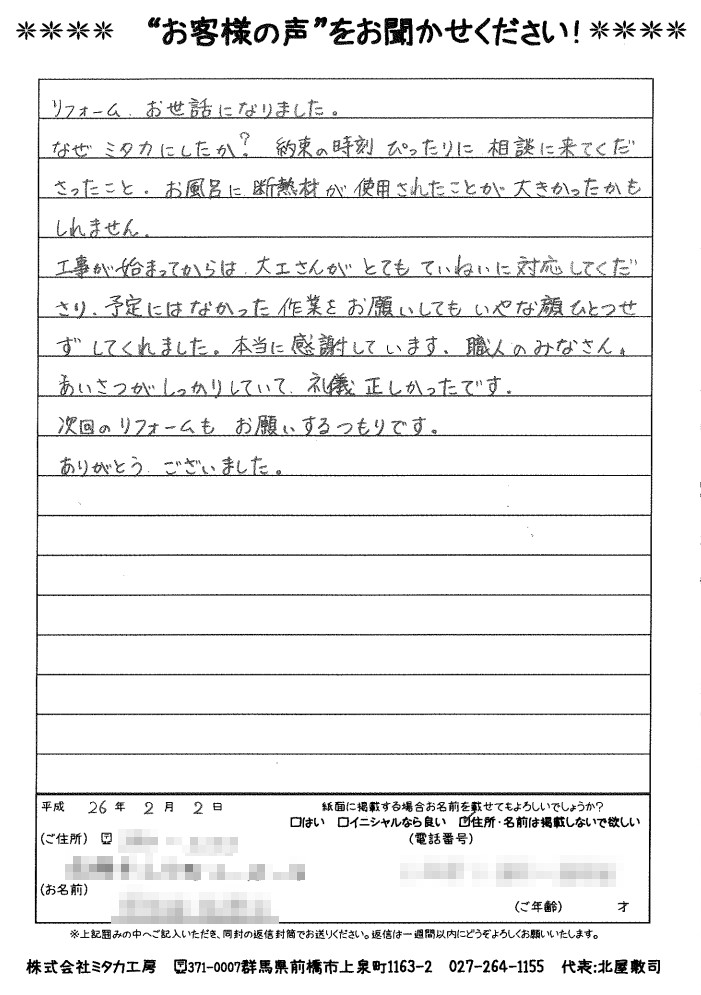 ＊＊＊＊ “お客様の声”をお聞かせください！＊＊＊＊
リフォーム、お世話になりました。
なぜ ミタカにしたか？ 約束の時刻 ぴったりに 相談に来てくだ
さったこと、お風呂に 断熱材が 使用されたことが 大きかったかも
しれません。
工事が始まってからは、大工さんが とても ていねいに対応してくだ
さり、予定にはなかった 作業を お願いしても いやな顔ひとつせ
ず してくれました。本当に 感謝しています、職人のみなさん、
あいさつが しっかりしていて、礼儀正しかったです。
次回のリフォームも お願いするつもりです。
ありがとう ございました。
平成 26 年 2 月 2 日 紙面に掲載する場合お名前を載せてもよろしいでしょうか？
□はい □イニシャルなら良い ☑住所・名前は掲載しないで欲しい
（ご住所） 〒 （電話番号）
（お名前）
（ご年齢） 才
※上記囲みの中へご記入いただき、同封の返信封筒でお送りください。返信は一週間以内にどうぞよろしくお願いいたします。
株式会社ミタカ工房 〒371-0007群馬県前橋市上泉町1163-2 027-264-1155 代表：北屋敷司